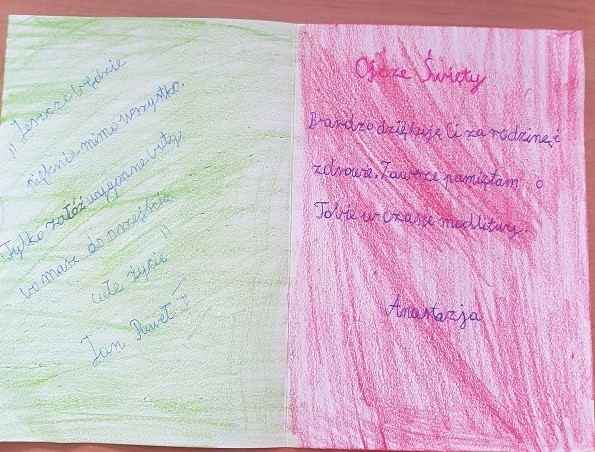 „Jeszcze będzie
pięknie mimo wszystko.
Tylko załóż wygodne buty
bo masz do przejścia
całe życie"
Jan Paweł II
Ojcze Święty
Bardzo dziękuję Ci za rodzinę i
zdrowie. Zawsze pamiętam o
Tobie w czasie modlitwy.
Anastazja